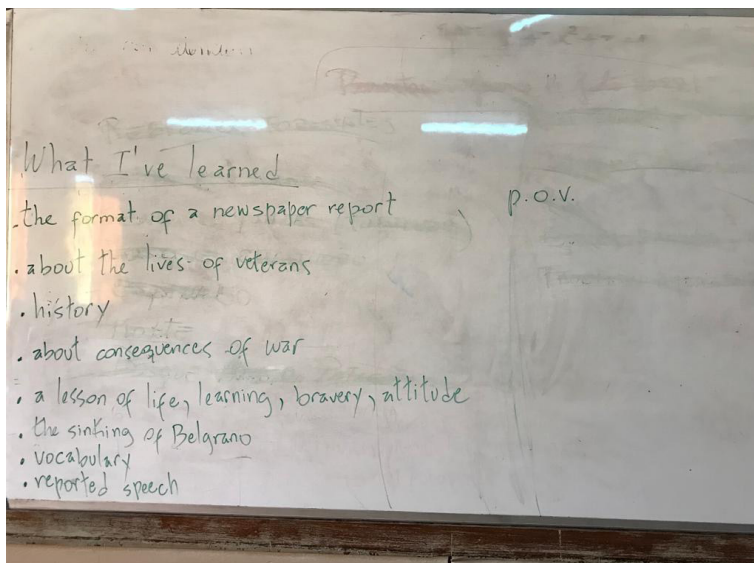 What I've learned
. the format of a newspaper report
p.o.v.
. about the lives of veterans
. history
. about consequences of war
. a lesson of life, learning, bravery, attitude
. the sinking of Belgrano
. vocabulary
. reported speech